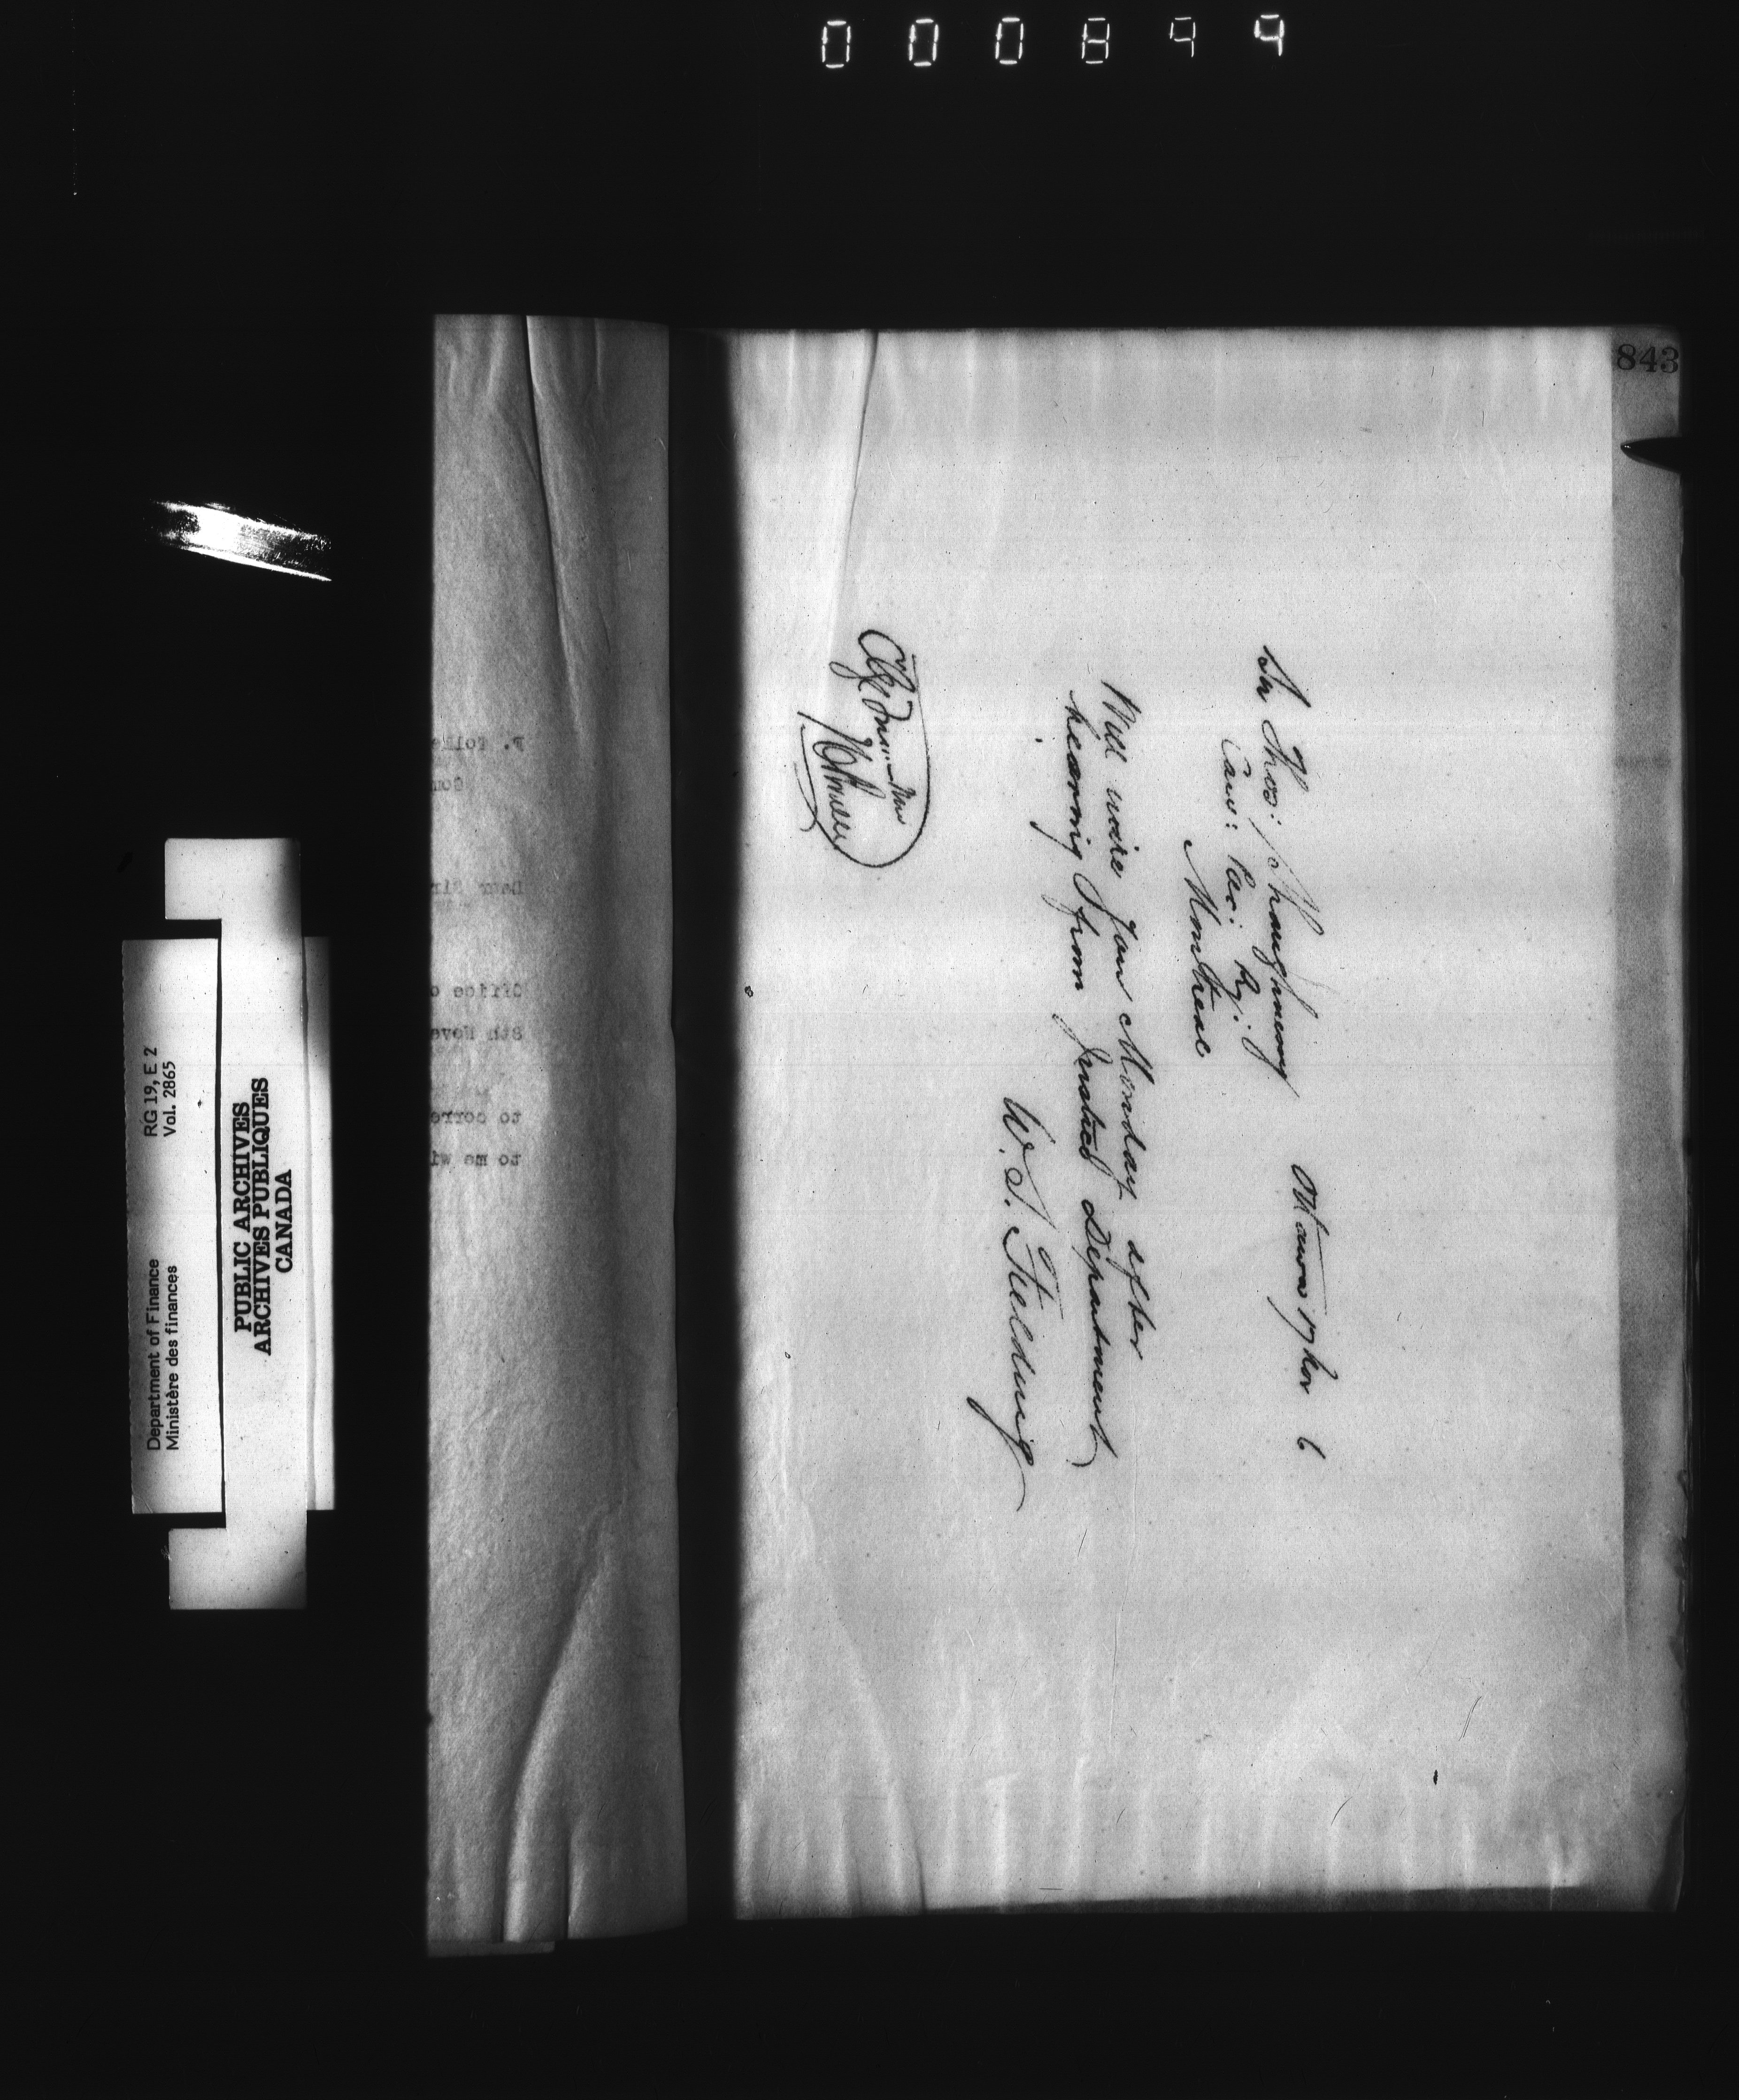 000899
843
Ottawa 17 Nov 6
Sir Thos: Shaughnessy
Can: Pac: Ry:
Montreal
Will wire you Monday after
hearing from Justice Department
W. S. Fielding
Chge
RG 19, E 2
Vol. 2865
Department of Finance
Ministère des finances
PUBLIC ARCHIVES
ARCHIVES PUBLIQUES
CANADA
Dear Sir
Office o
8th Nove
to corre
to me wi